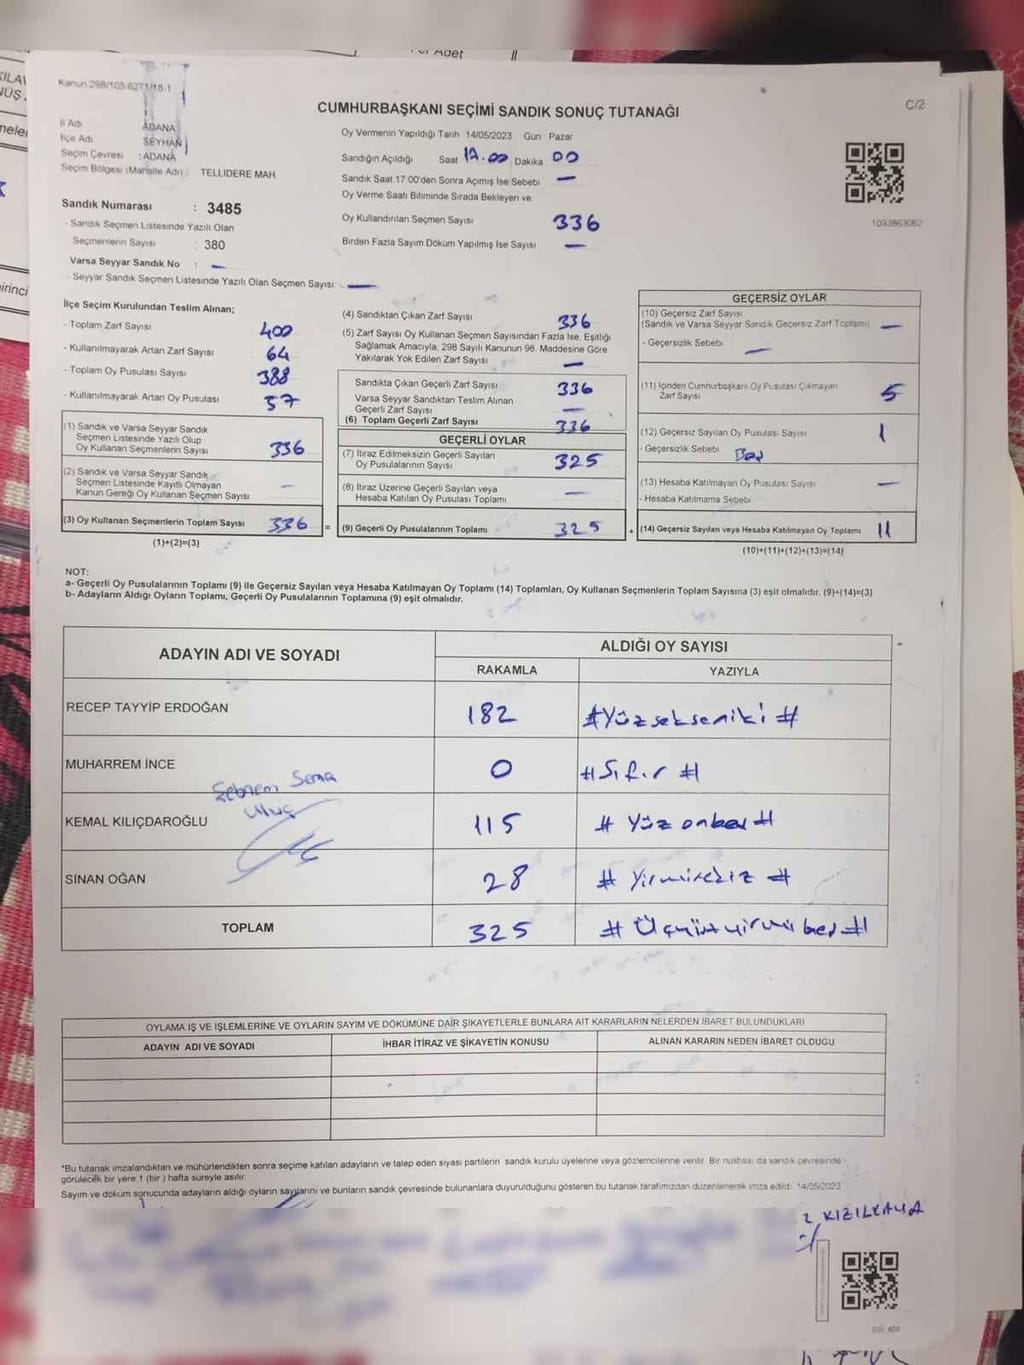 Kanun.298/105.6271/18-1
CUMHURBAŞKANI SEÇİMİ SANDIK SONUÇ TUTANAĞI
C/2
İl Adı ADANA
İlçe Adı SEYHAN
Seçim Çevresi : ADANA
Seçim Bölgesi (Mahalle Adı) TELLIDERE MAH.
Sandık Numarası : 3485
- Sandık Seçmen Listesinde Yazılı Olan
Seçmenlerin Sayısı : 380
Varsa Seyyar Sandık No : —
- Seyyar Sandık Seçmen Listesinde Yazılı Olan Seçmen Sayısı: —
Oy Vermenin Yapıldığı Tarih 14/05/2023 Gün Pazar
Sandığın Açıldığı Saat 17.00 Dakika 00
Sandık Saat 17.00'den Sonra Açımış İse Sebebi —
Oy Verme Saati Bitiminde Sırada Bekleyen ve
Oy Kullandırılan Seçmen Sayısı 336
Birden Fazla Sayım Döküm Yapılmış İse Sayısı —
1093863062
İlçe Seçim Kurulundan Teslim Alınan;
- Toplam Zarf Sayısı 400
- Kullanılmayarak Artan Zarf Sayısı 64
- Toplam Oy Pusulası Sayısı 388
- Kullanılmayarak Artan Oy Pusulası 57
(1) Sandık ve Varsa Seyyar Sandık
Seçmen Listesinde Yazılı Olup
Oy Kullanan Seçmenlerin Sayısı 336
(2) Sandık ve Varsa Seyyar Sandık
Seçmen Listesinde Kayıtlı Olmayan
Kanun Gereği Oy Kullanan Seçmen Sayısı —
(3) Oy Kullanan Seçmenlerin Toplam Sayısı 336 =
(1)+(2)=(3)
(4) Sandıktan Çıkan Zarf Sayısı 336
(5) Zarf Sayısı Oy Kullanan Seçmen Sayısından Fazla İse, Eşitliği
Sağlamak Amacıyla, 298 Sayılı Kanunun 98. Maddesine Göre
Yakılarak Yok Edilen Zarf Sayısı —
Sandıkta Çıkan Geçerli Zarf Sayısı 336
Varsa Seyyar Sandıktan Teslim Alınan
Geçerli Zarf Sayısı —
(6) Toplam Geçerli Zarf Sayısı 336
GEÇERLİ OYLAR
(7) İtiraz Edilmeksizin Geçerli Sayılan
Oy Pusulalarının Sayısı 325
(8) İtiraz Üzerine Geçerli Sayılan veya
Hesaba Katılan Oy Pusulası Toplamı —
(9) Geçerli Oy Pusulalarının Toplamı 325 +
GEÇERSİZ OYLAR
(10) Geçersiz Zarf Sayısı
(Sandık ve Varsa Seyyar Sandık Geçersiz Zarf Toplamı) —
- Geçersizlik Sebebi —
(11) İçinden Cumhurbaşkanı Oy Pusulası Çıkmayan
Zarf Sayısı 5
(12) Geçersiz Sayılan Oy Pusulası Sayısı 1
- Geçersizlik Sebebi
(13) Hesaba Katılmayan Oy Pusulası Sayısı —
- Hesaba Katılmama Sebebi
(14) Geçersiz Sayılan veya Hesaba Katılmayan Oy Toplamı 11
(10)+(11)+(12)+(13)=(14)
NOT:
a- Geçerli Oy Pusulalarının Toplamı (9) ile Geçersiz Sayılan veya Hesaba Katılmayan Oy Toplamı (14) Toplamları, Oy Kullanan Seçmenlerin Toplam Sayısına (3) eşit olmalıdır. (9)+(14)=(3)
b- Adayların Aldığı Oyların Toplamı, Geçerli Oy Pusulalarının Toplamına (9) eşit olmalıdır.
ADAYIN ADI VE SOYADI ALDIĞI OY SAYISI
RAKAMLA YAZIYLA
RECEP TAYYİP ERDOĞAN 182 #Yüzsekseniki#
MUHARREM İNCE 0 #Sıfır#
Şebnem Sema
Uluç
KEMAL KILIÇDAROĞLU 115 #Yüz onbeş#
SİNAN OĞAN 28 #Yirmisekiz#
TOPLAM 325 #Üçyüzyirmi beş#
OYLAMA İŞ VE İŞLEMLERINE VE OYLARIN SAYIM VE DÖKÜMÜNE DAİR ŞİKAYETLERLE BUNLARA AİT KARARLARIN NELERDEN İBARET BULUNDUKLARI
ADAYIN ADI VE SOYADI İHBAR İTİRAZ VE ŞİKAYETİN KONUSU ALINAN KARARIN NEDEN İBARET OLDUGU
*Bu tutanak imzalandıktan ve mühürlendikten sonra seçime katılan adayların ve talep eden siyasi partilerin sandık kurulu üyelerine veya gözlemcilerine verilir. Bir nüshası da sandık çevresinde
görülecek bir yere 1 (bir) hafta süreyle asılır.
Sayım ve döküm sonucunda adayların aldığı oyların sayılarını ve bunların sandık çevresinde bulunanlara duyurulduğunu gösteren bu tutanak tarafımızdan düzenlenerek imza edildi. 14/05/2023
KIZILKAYA